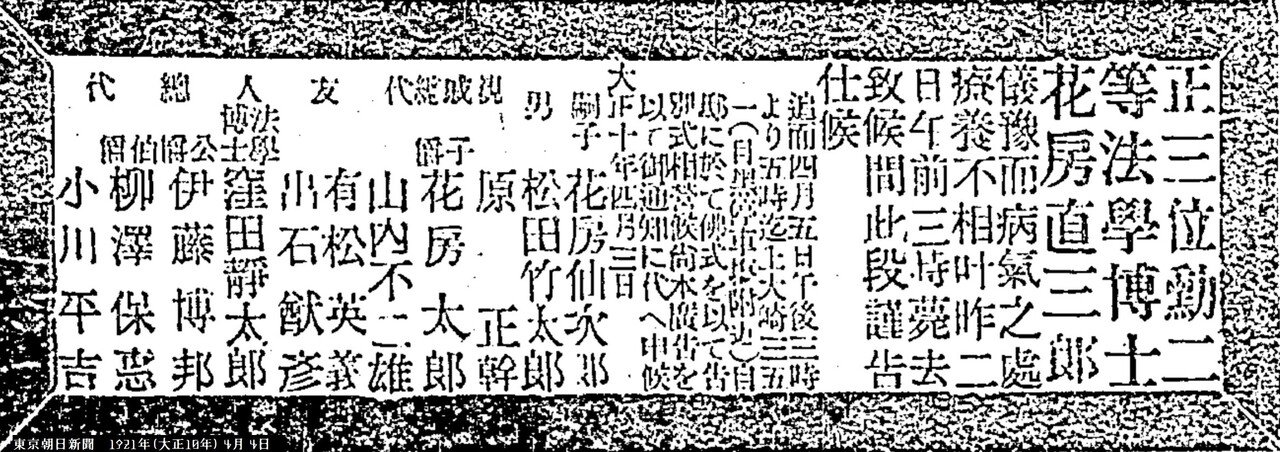 正三位勳二
等法學博士
花房直三郎
儀豫而病氣之處
療養不相叶昨二
日午前三時薨去
致候間此段謹告
仕候
追而四月五日午後三時
より五時迄上大崎三五
一(目黒 附近)自
邸に於て佛式を以て告
別式相營候尚本廣告を
以て御通知に代へ申候
大正十年四月三日
嗣子 花房仙次郎
男 松田竹太郎
親戚總代
原正幹
子爵 花房太郎
山内不二雄
友人總代
有松英義
出石猷彦
法學博士 窪田靜太郎
公爵 伊藤博邦
伯爵 柳澤保惠
小川平吉
東京朝日新聞 1921年(大正10年) 4月 4日